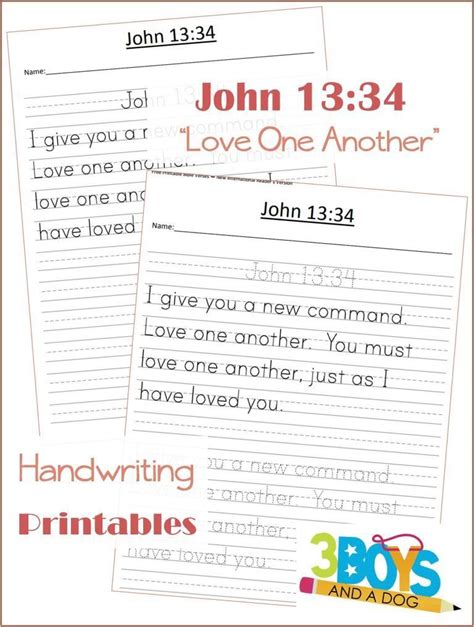 John 13:34
Name:
John 13:34
I give you a new command.
Love one another. You must
love one
have loved
John 13:34
"Love One Another"
Free Printable Bible Verses New International Reader's Version
John 13:34
Name:
John 13:34
I give you a new command.
Love one another. You must
love one another, just as I
have loved you.
you a new command.
one another. You must
another, just as I
have loved you.
Handwriting
Printables
3BOYS
AND A DOG